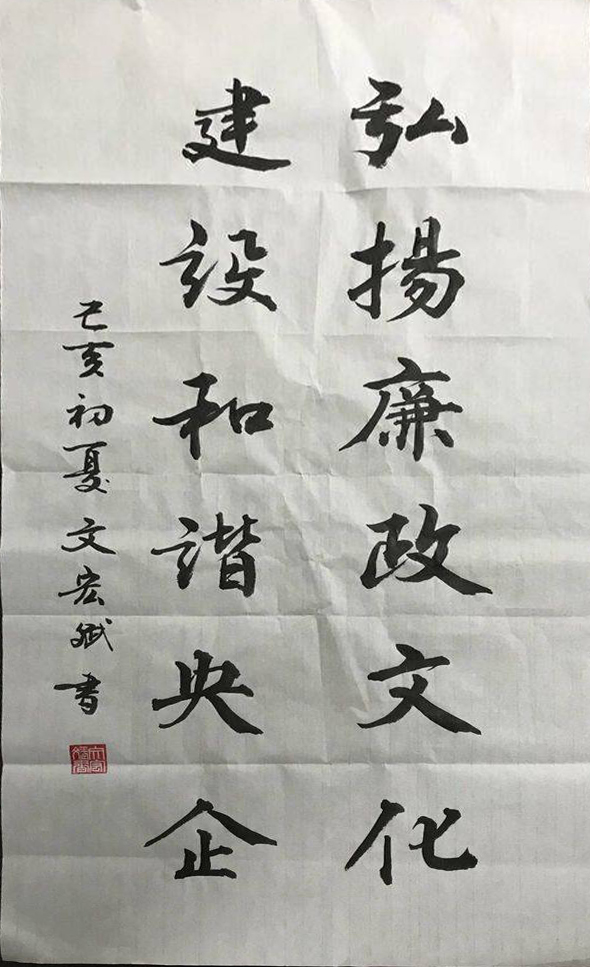 弘揚廉政文化
建設和諧央企
己亥初夏文宏斌書